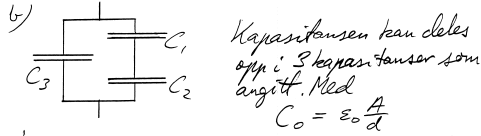 b)
C₁
C₂
C₃
Kapasitansen kan deles
opp i 3 kapasitanser som
angitt. Med
C₀ = ε₀ A/d